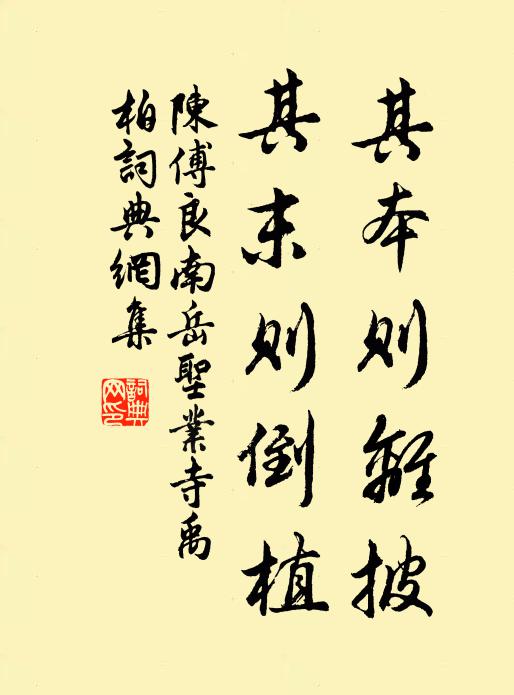 其本则離披
其末则倒植
陳傅良南岳聖業寺禹
柏詞典網集
詞典网印